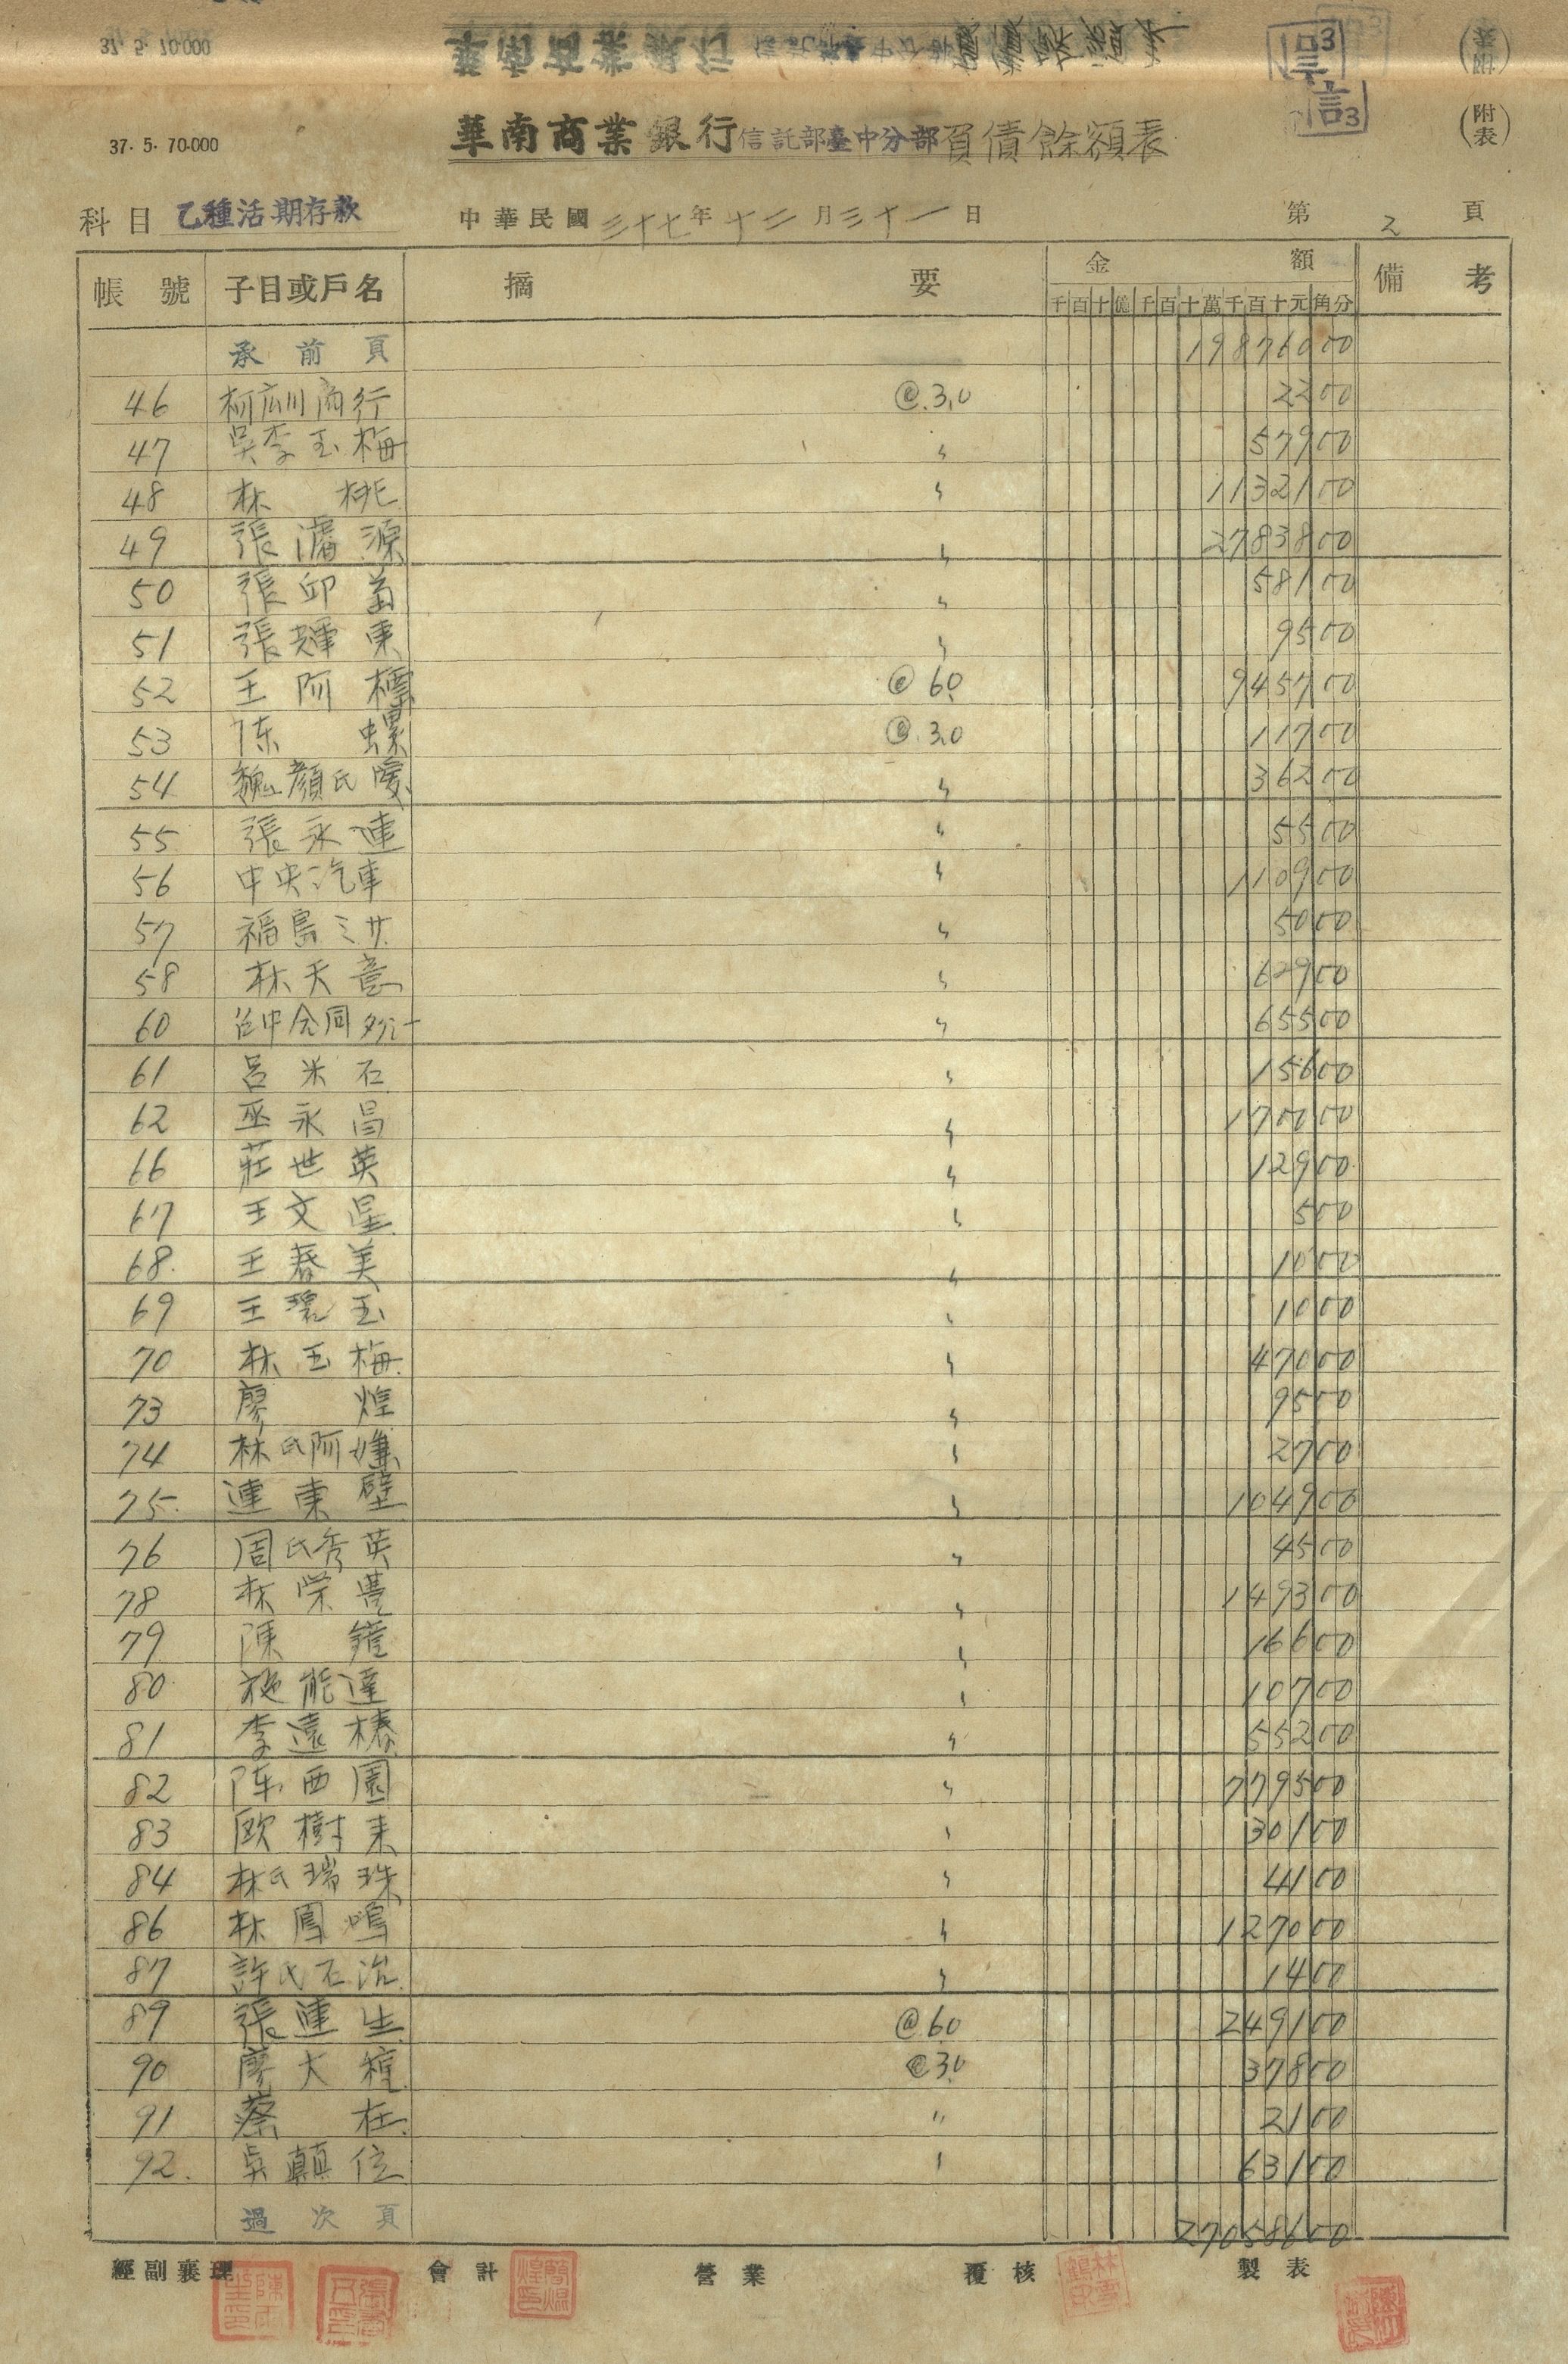 37. 5. 70.000
華南商業銀行信託部臺中分部負債餘額表
(附表)
科目 乙種活期存款 中華民國三十七年十二月三十一日 第2頁
帳號 子目或戶名 摘要 金額 備考
千百十億千百十萬千百十元角分
承前頁 19876000
46 柯広川商行 @3.0 2200
47 吳李玉梅 〃 57900
48 林桃 〃 1132100
49 張濬源 〃 2783800
50 張邱 〃 58100
51 張輝東 〃 9500
52 王阿標 @60 945700
53 陈螺 @3.0 11700
54 魏顏氏暖 〃 36200
55 張永連 〃 5500
56 中央汽車 〃 110900
57 福島ミサ 〃 5000
58 林天意 〃 62900
60 台中合同 〃 65500
61 呂米石 〃 15600
62 巫永昌 〃 170000
66 莊世英 〃 12900
67 王文星 〃 500
68. 王春美 〃 1000
69 王碧玉 〃 1000
70 林玉梅 〃 47000
73 廖煌 〃 9500
74 林氏阿嫌 〃 2700
75. 連東壁 〃 104900
76 周氏秀英 〃 4500
78 林荣 〃 149300
79 陳鐘 〃 16600
80 施能達 〃 10700
81 李遠椿 〃 55200
82 陈西園 〃 779500
83 欧樹来 〃 30100
84 林氏瑞珠 〃 4400
86 林鳳鳴 〃 127000
87 許氏石 〃 1400
89 張連生 @60 249100
90 廖大 @3.0 37800
91 蔡在 〃 2100
92. 吳顛位 〃 63100
過次頁 27058600
經副襄理 會計 營業 覆核 製表